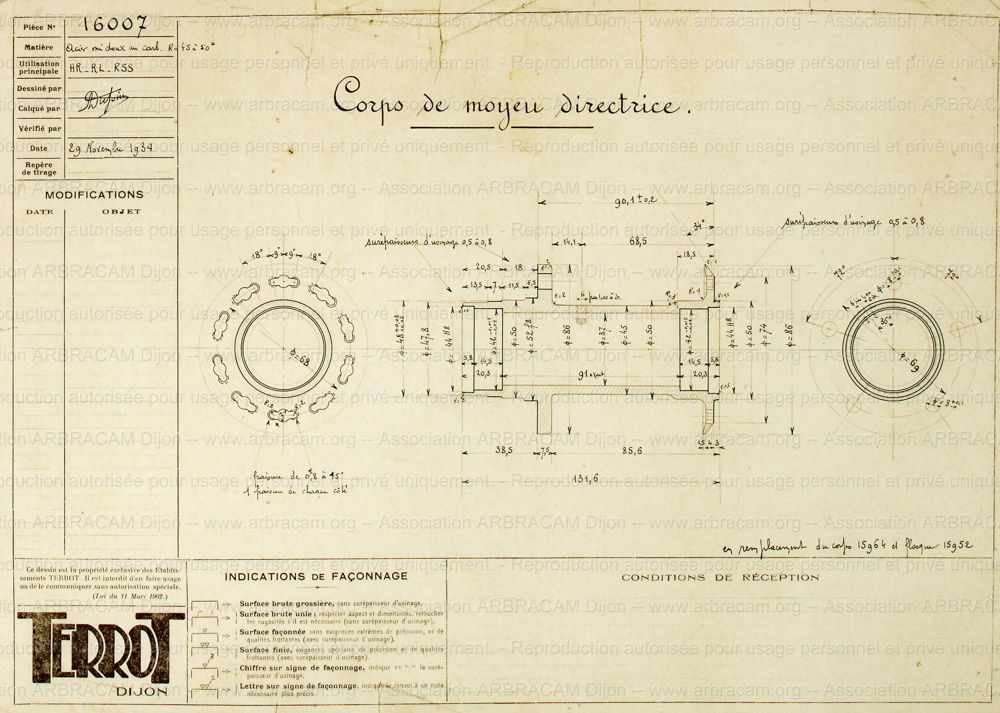 Pièce N° 16007
Matière Acier mi doux au carb. R=45 à 50
Utilisation principale HR_RL_RSS
Dessiné par
Calqué par
Vérifié par
Date 29 Novembre 1934
Repère de tirage
MODIFICATIONS
DATE OBJET
Corps de moyeu directrice.
90,1 ±0,2
34°
surépaisseurs d'usinage 0,5 à 0,8
surépaisseurs d'usinage 0,5 à 0,8
14,1 68,5
18,5
20,5 18
13,5 7 11,5 6,5
18° 9° 9° 18°
72° 72°
36°
ϕ=68
ϕ=69
ϕ=48
ϕ=47,8
ϕ=44 H8
ϕ=42
ϕ=50
ϕ=52 f8
ϕ=86
ϕ=37
ϕ=45
ϕ=50
ϕ=42
ϕ=44 H8
ϕ=50
ϕ=74
ϕ=86
5,8 14,5
20,3
91
14,5 5,8
20,3
R=2 R=2
38,5 7,5 85,6
1,5 4,3
131,6
fraisure de 0,8 à 45°
1 fraisure de chaque côté
en remplacement du corps 15964 et flasque 15952
Ce dessin est la propriété exclusive des Établis-
sements TERROT. Il est interdit d'en faire usage
ou de le communiquer sans autorisation spéciale.
(Loi du 11 Mars 1902.)
TERROT
DIJON
INDICATIONS DE FAÇONNAGE
Surface brute grossière, sans surépaisseur d'usinage.
Surface brute unie; respecter aspect et dimensions, retoucher
les rugosités s'il est nécessaire (sans surépaisseur d'usinage).
Surface façonnée sans exigences extrêmes de précision, ni de
qualités frottantes (avec surépaisseur d'usinage).
Surface finie, exigences spéciales de précision et de qualités
frottantes (avec surépaisseur d'usinage).
Chiffre sur signe de façonnage, indique en "/" la suré-
paisseur d'usinage.
Lettre sur signe de façonnage, indique le renvoi à un nota
nécessaire plus précis.
CONDITIONS DE RÉCEPTION
Association ARBRACAM Dijon -- www.arbracam.org -- Reproduction autorisée pour usage personnel et privé uniquement.